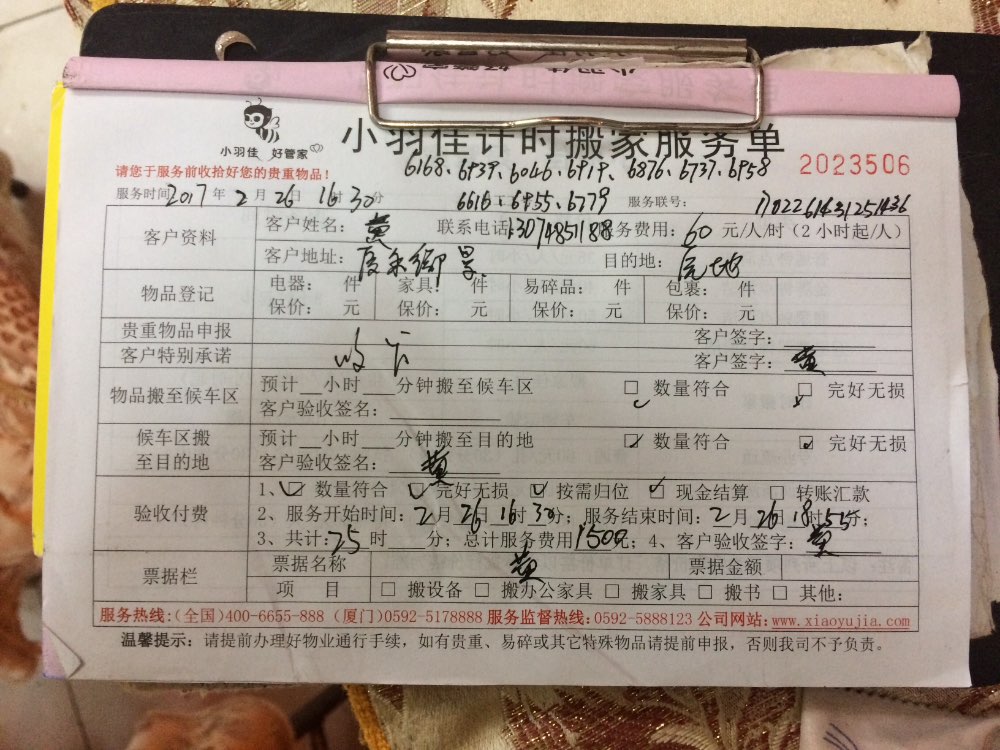 小羽佳 好管家
小羽佳计时搬家服务单
请您于服务前收拾好您的贵重物品!
6168、6939、6046、6919、6876、6737、6958
2023506
服务时间 2017年2月26日16时30分
6616、6955、6779
服务联号:
客户资料
客户姓名: 黄 联系电话: 服务费用: 60 元/人/时(2小时起/人)
客户地址: 目的地:
物品登记
电器: 件 家具: 件 易碎品: 件 包裹: 件
保价: 元 保价: 元 保价: 元 保价: 元
贵重物品申报 客户签字:
客户特别承诺 客户签字: 黄
物品搬至候车区
预计__小时____分钟搬至候车区 □ 数量符合 □ 完好无损
客户验收签名:
候车区搬
至目的地
预计__小时____分钟搬至目的地 ☑ 数量符合 ☑ 完好无损
客户验收签名: 黄
验收付费
1、☑ 数量符合 ☑ 完好无损 ☑ 按需归位 ☑ 现金结算 □ 转账汇款
2、服务开始时间: 2月26日16时30分; 服务结束时间: 2月26日18时55分;
3、共计: 25时____分; 总计服务费用1500元; 4、客户验收签字: 黄
票据栏
票据名称 黄 票据金额
项 目 □ 搬设备 □ 搬办公家具 □ 搬家具 □ 搬书 □ 其他:
服务热线:(全国)400-6655-888 (厦门)0592-5178888 服务监督热线:0592-5888123 公司网站:www.xiaoyujia.com
温馨提示: 请提前办理好物业通行手续,如有贵重、易碎或其它特殊物品请提前申报,否则我司不予负责。